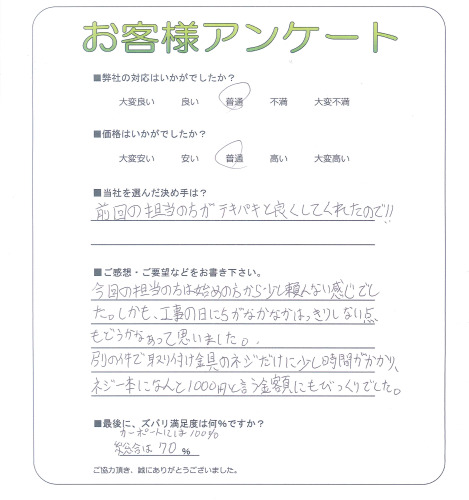 お客様アンケート
■弊社の対応はいかがでしたか?
大変良い 良い 普通 不満 大変不満
■価格はいかがでしたか?
大変安い 安い 普通 高い 大変高い
■当社を選んだ決め手は?
前回の担当の方がテキパキと良くしてくれたので!!
■ご感想・ご要望などをお書き下さい。
今回の担当の方は始めの方から少し頼んない感じでし
た。しかも、工事の日にちがなかなかはっきりしない点
もどうかなぁって思いました。
別の件で取り付け金具のネジだけに少し時間がかかり、
ネジ一本になんと1000円と言う金額にもびっくりでした。
■最後に、ズバリ満足度は何%ですか?
カーポートには100%
総合は 70 %
ご協力頂き、誠にありがとうございました。